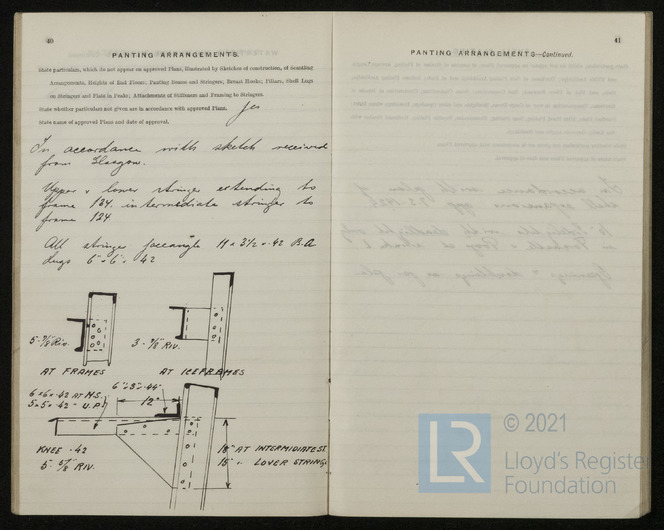 40
PANTING ARRANGEMENTS.
State particulars, which do not appear on approved Plans, illustrated by Sketches of construction, of Scantling
Arrangements, Heights of End Floors; Panting Beams and Stringers, Breast Hooks; Pillars, Shell Lugs
on Stringers and Flats in Peaks; Attachments of Stiffeners and Framing to Stringers.
State whether particulars not given are in accordance with approved Plans. Yes
State name of approved Plans and date of approval.
In accordance with sketch received
from Glasgow.
Upper & lower stringer extending to
frame 134. intermediate stringer to
frame 124.
All stringer face angle 11 x 3 1/2 x .42 B.A
Lugs 6" x 6" x .42
5 - 7/8 RIV.
3 - 7/8" RIV.
AT FRAMES
AT ICEFRAMES
6 x 6 x .42 AT M.S.
5 x 5 x .42 - U.P.
6" x 3" x .44"
12"
KNEE .42
5 7/8 RIV.
18" AT INTERMIDIATE ST.
15" " LOVER STRING.
41
PANTING ARRANGEMENTS—Continued.
LR
© 2021
Lloyd's Register
Foundation